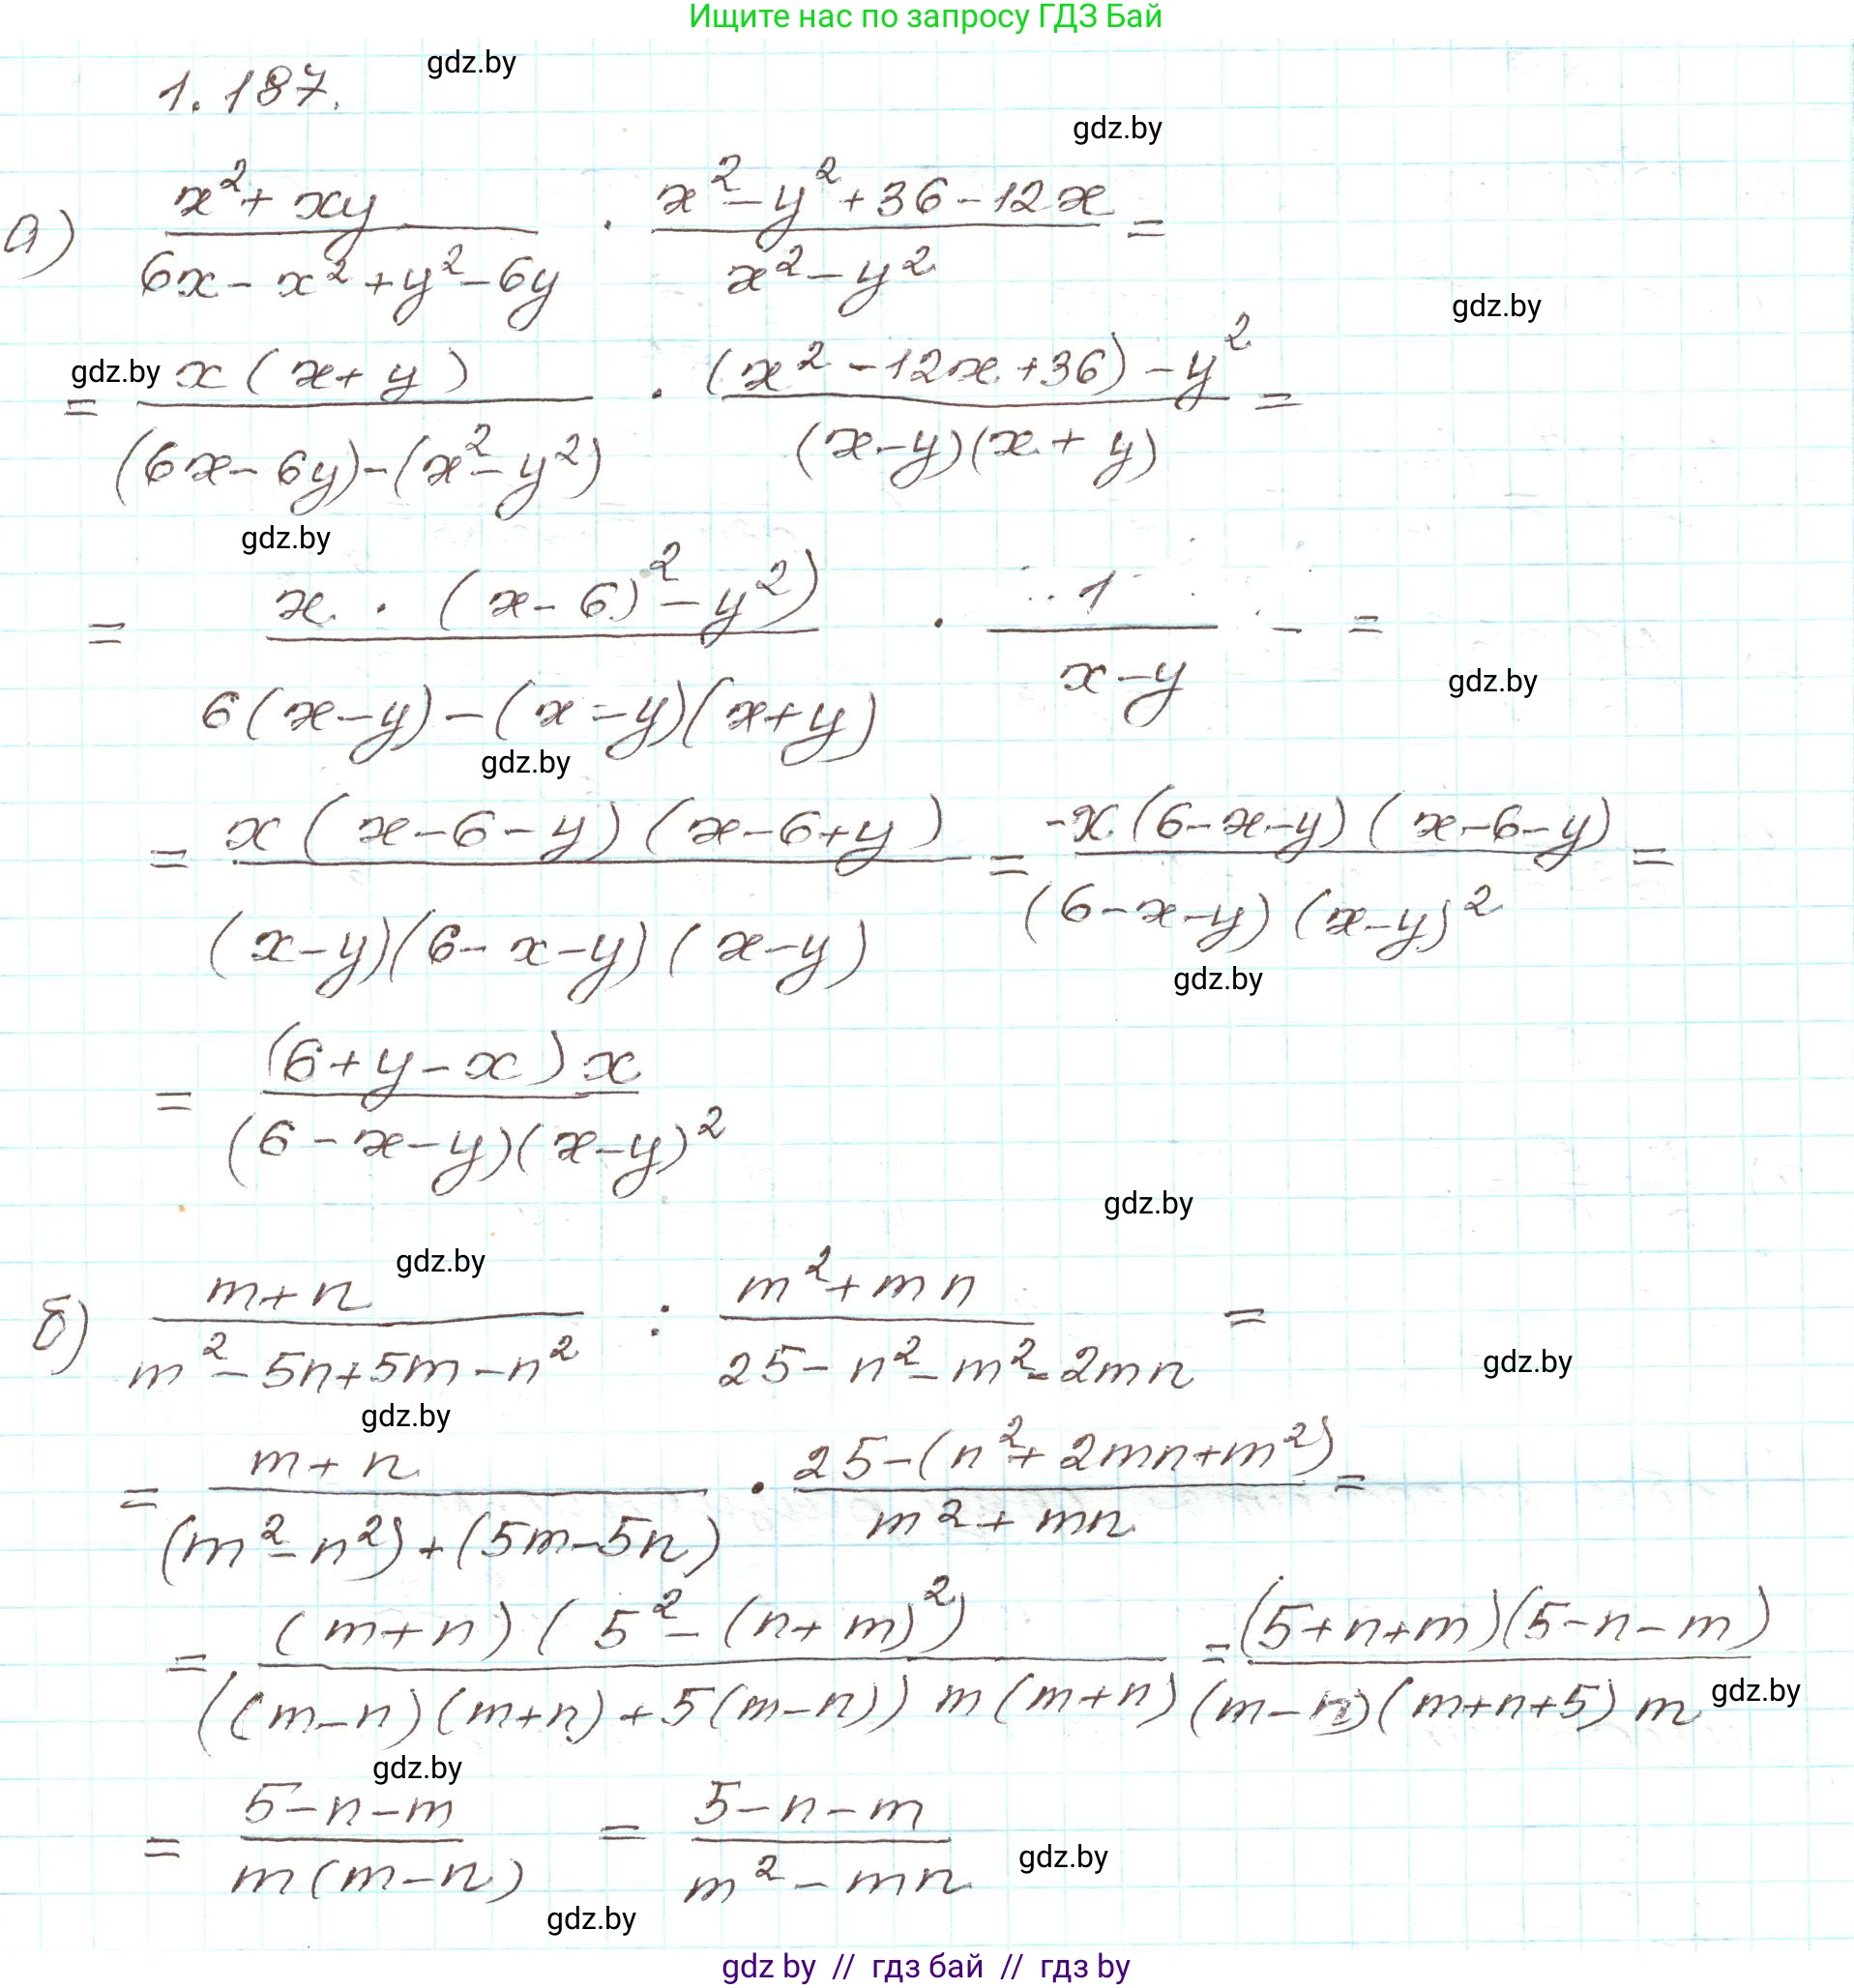 Ищите нас по запросу ГДЗ Бай
1.187. gdz.by
gdz.by
а) (x² + xy)/(6x - x² + y² - 6y) · (x² - y² + 36 - 12x)/(x² - y²) =
gdz.by
gdz.by
= (x(x + y))/((6x - 6y) - (x² - y²)) · ((x² - 12x + 36) - y²)/((x - y)(x + y)) =
gdz.by
= (x · (x - 6)² - y²))/(6(x - y) - (x - y)(x + y)) · 1/(x - y) - =
gdz.by
gdz.by
= (x(x - 6 - y)(x - 6 + y))/((x - y)(6 - x - y)(x - y)) = (-x(6 - x - y)(x - 6 - y))/((6 - x - y)(x - y)²) =
gdz.by
= ((6 + y - x)x)/((6 - x - y)(x - y)²)
gdz.by
gdz.by
б) (m + n)/(m² - 5n + 5m - n²) : (m² + mn)/(25 - n² - m² - 2mn) =
gdz.by
gdz.by
= (m + n)/((m² - n²) + (5m - 5n)) · (25 - (n² + 2mn + m²))/(m² + mn) =
= ((m + n)(5² - (n + m)²))/(((m - n)(m + n) + 5(m - n)) m(m + n)) = ((5 + n + m)(5 - n - m))/((m - n)(m + n + 5) m)
gdz.by
gdz.by
= (5 - n - m)/(m(m - n)) = (5 - n - m)/(m² - mn)
gdz.by
gdz.by
gdz by // гдз бай // гдз by